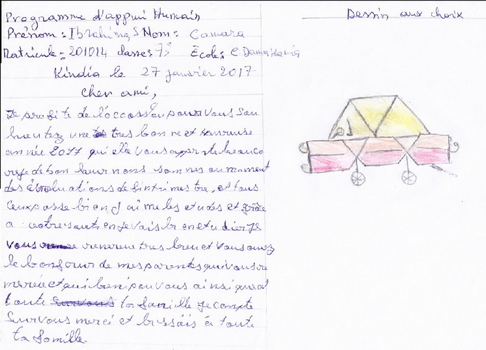 Programme d'appui Humain
Prénom : Ibrahima S Nom : Camara
Matricule : 201014 classes 7è Écoles
Kindia le 27 janvier 2017
cher ami,
Je profite de l'occasion pour vous sou
haitez une tres bonne et heureuse
année 2017 qu'elle vous apporte beaucou
de bonheur nous sommes au moment
des évaluations de trimestre, et tous
passe bien J'aime les etudes et grâce
a votre soutien je vais bien etudier Je
vous remercie tres bien et vous avez
le bonjour de mes parents qui vous re
mercie et qui beni pour vous ainsi que
toute ta famille Je compte
sur vous merci et bissais à toute
ta famille
Dessin aux choix